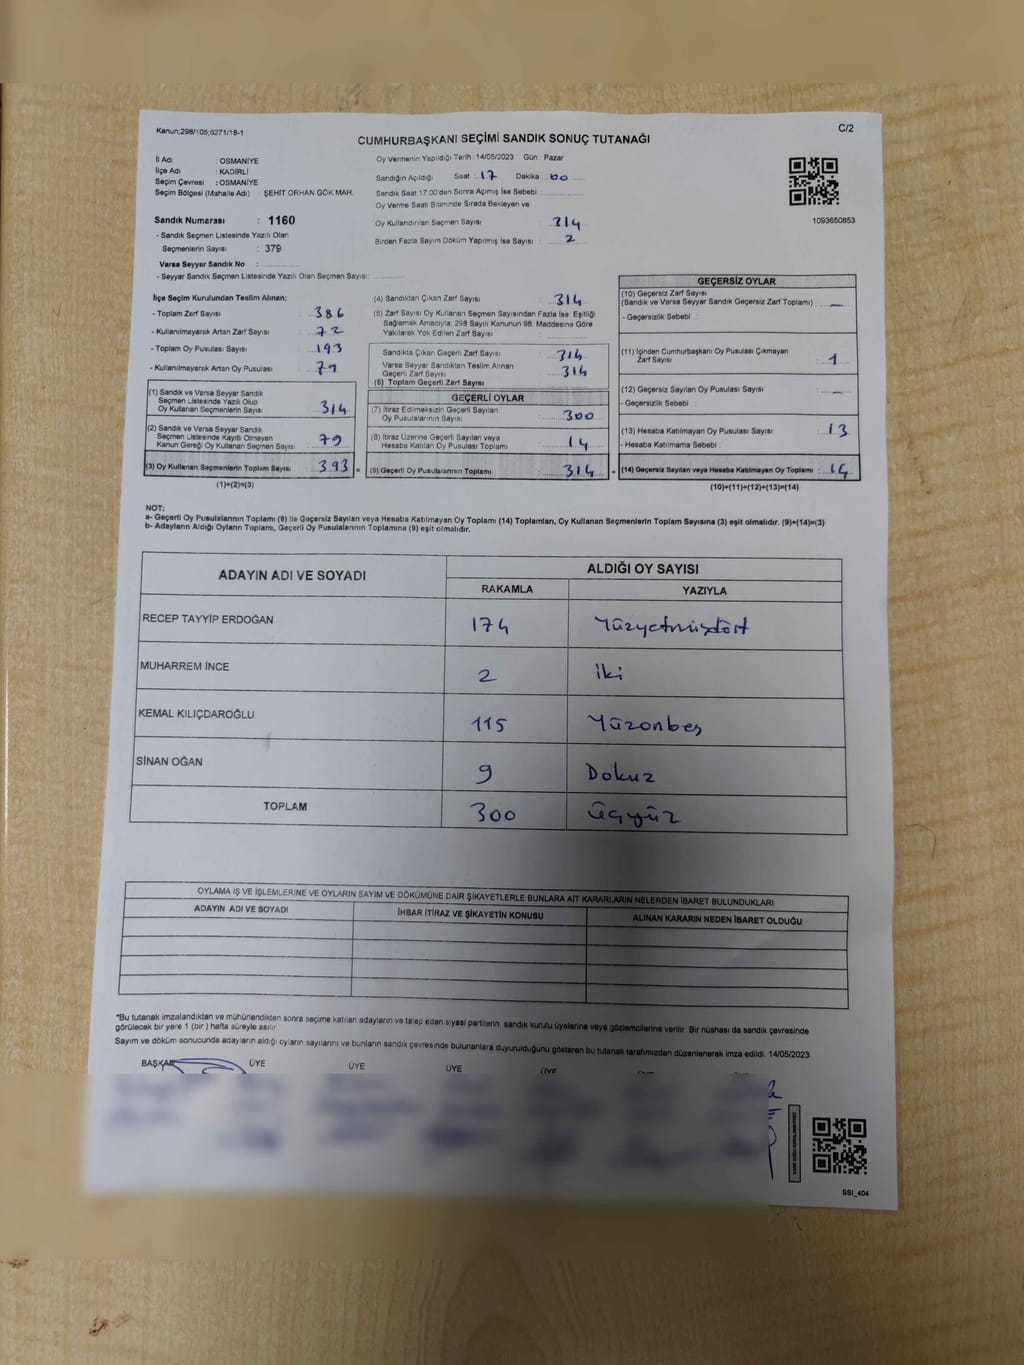 Kanun;298/105;6271/18-1
C/2
CUMHURBAŞKANI SEÇİMİ SANDIK SONUÇ TUTANAĞI
İl Adı : OSMANİYE
İlçe Adı : KADİRLİ
Seçim Çevresi : OSMANİYE
Seçim Bölgesi (Mahalle Adı) : ŞEHİT ORHAN GÖK MAH.
Sandık Numarası : 1160
- Sandık Seçmen Listesinde Yazılı Olan
Seçmenlerin Sayısı : 379
Varsa Seyyar Sandık No :
- Seyyar Sandık Seçmen Listesinde Yazılı Olan Seçmen Sayısı:
Oy Vermenin Yapıldığı Tarih :14/05/2023 Gün : Pazar
Sandığın Açıldığı Saat : 17 Dakika : 00
Sandık Saat 17:00'den Sonra Açılmış İse Sebebi :
Oy Verme Saati Bitiminde Sırada Bekleyen ve
Oy Kullandırılan Seçmen Sayısı : 314
Birden Fazla Sayım Döküm Yapılmış İse Sayısı : 2
1093650853
İlçe Seçim Kurulundan Teslim Alınan;
- Toplam Zarf Sayısı : 386
- Kullanılmayarak Artan Zarf Sayısı : 72
- Toplam Oy Pusulası Sayısı : 193
- Kullanılmayarak Artan Oy Pusulası : 79
(1) Sandık ve Varsa Seyyar Sandık
Seçmen Listesinde Yazılı Olup
Oy Kullanan Seçmenlerin Sayısı : 314
(2) Sandık ve Varsa Seyyar Sandık
Seçmen Listesinde Kayıtlı Olmayan
Kanun Gereği Oy Kullanan Seçmen Sayısı : 79
(3) Oy Kullanan Seçmenlerin Toplam Sayısı : 393 =
(1)+(2)=(3)
(4) Sandıktan Çıkan Zarf Sayısı : 314
(5) Zarf Sayısı Oy Kullanan Seçmen Sayısından Fazla İse, Eşitliği
Sağlamak Amacıyla, 298 Sayılı Kanunun 98. Maddesine Göre
Yakılarak Yok Edilen Zarf Sayısı :
Sandıkta Çıkan Geçerli Zarf Sayısı : 314
Varsa Seyyar Sandıktan Teslim Alınan
Geçerli Zarf Sayısı : 314
(6) Toplam Geçerli Zarf Sayısı
GEÇERLİ OYLAR
(7) İtiraz Edilmeksizin Geçerli Sayılan
Oy Pusulalarının Sayısı : 300
(8) İtiraz Üzerine Geçerli Sayılan veya
Hesaba Katılan Oy Pusulası Toplamı : 14
(9) Geçerli Oy Pusulalarının Toplamı : 314 +
GEÇERSİZ OYLAR
(10) Geçersiz Zarf Sayısı
(Sandık ve Varsa Seyyar Sandık Geçersiz Zarf Toplamı) : —
- Geçersizlik Sebebi :
(11) İçinden Cumhurbaşkanı Oy Pusulası Çıkmayan
Zarf Sayısı : 1
(12) Geçersiz Sayılan Oy Pusulası Sayısı : —
- Geçersizlik Sebebi :
(13) Hesaba Katılmayan Oy Pusulası Sayısı : 13
- Hesaba Katılmama Sebebi :
(14) Geçersiz Sayılan veya Hesaba Katılmayan Oy Toplamı : 14
(10)+(11)+(12)+(13)=(14)
NOT:
a- Geçerli Oy Pusulalarının Toplamı (9) ile Geçersiz Sayılan veya Hesaba Katılmayan Oy Toplamı (14) Toplamları, Oy Kullanan Seçmenlerin Toplam Sayısına (3) eşit olmalıdır. (9)+(14)=(3)
b- Adayların Aldığı Oyların Toplamı, Geçerli Oy Pusulalarının Toplamına (9) eşit olmalıdır.
ADAYIN ADI VE SOYADI
ALDIĞI OY SAYISI
RAKAMLA YAZIYLA
RECEP TAYYİP ERDOĞAN 174 Yüzyetmişdört
MUHARREM İNCE 2 İki
KEMAL KILIÇDAROĞLU 115 Yüzonbeş
SİNAN OĞAN 9 Dokuz
TOPLAM 300 Üçyüz
OYLAMA İŞ VE İŞLEMLERİNE VE OYLARIN SAYIM VE DÖKÜMÜNE DAİR ŞİKAYETLERLE BUNLARA AİT KARARLARIN NELERDEN İBARET BULUNDUKLARI
ADAYIN ADI VE SOYADI İHBAR İTİRAZ VE ŞİKAYETİN KONUSU ALINAN KARARIN NEDEN İBARET OLDUĞU
*Bu tutanak imzalandıktan ve mühürlendikten sonra seçime katılan adayların ve talep eden siyasi partilerin sandık kurulu üyelerine veya gözlemcilerine verilir. Bir nüshası da sandık çevresinde
görülecek bir yere 1 (bir) hafta süreyle asılır.
Sayım ve döküm sonucunda adayların aldığı oyların sayılarını ve bunların sandık çevresinde bulunanlara duyurulduğunu gösteren bu tutanak tarafımızdan düzenlenerek imza edildi. 14/05/2023
BAŞKAN ÜYE ÜYE ÜYE ÜYE
SSI_404